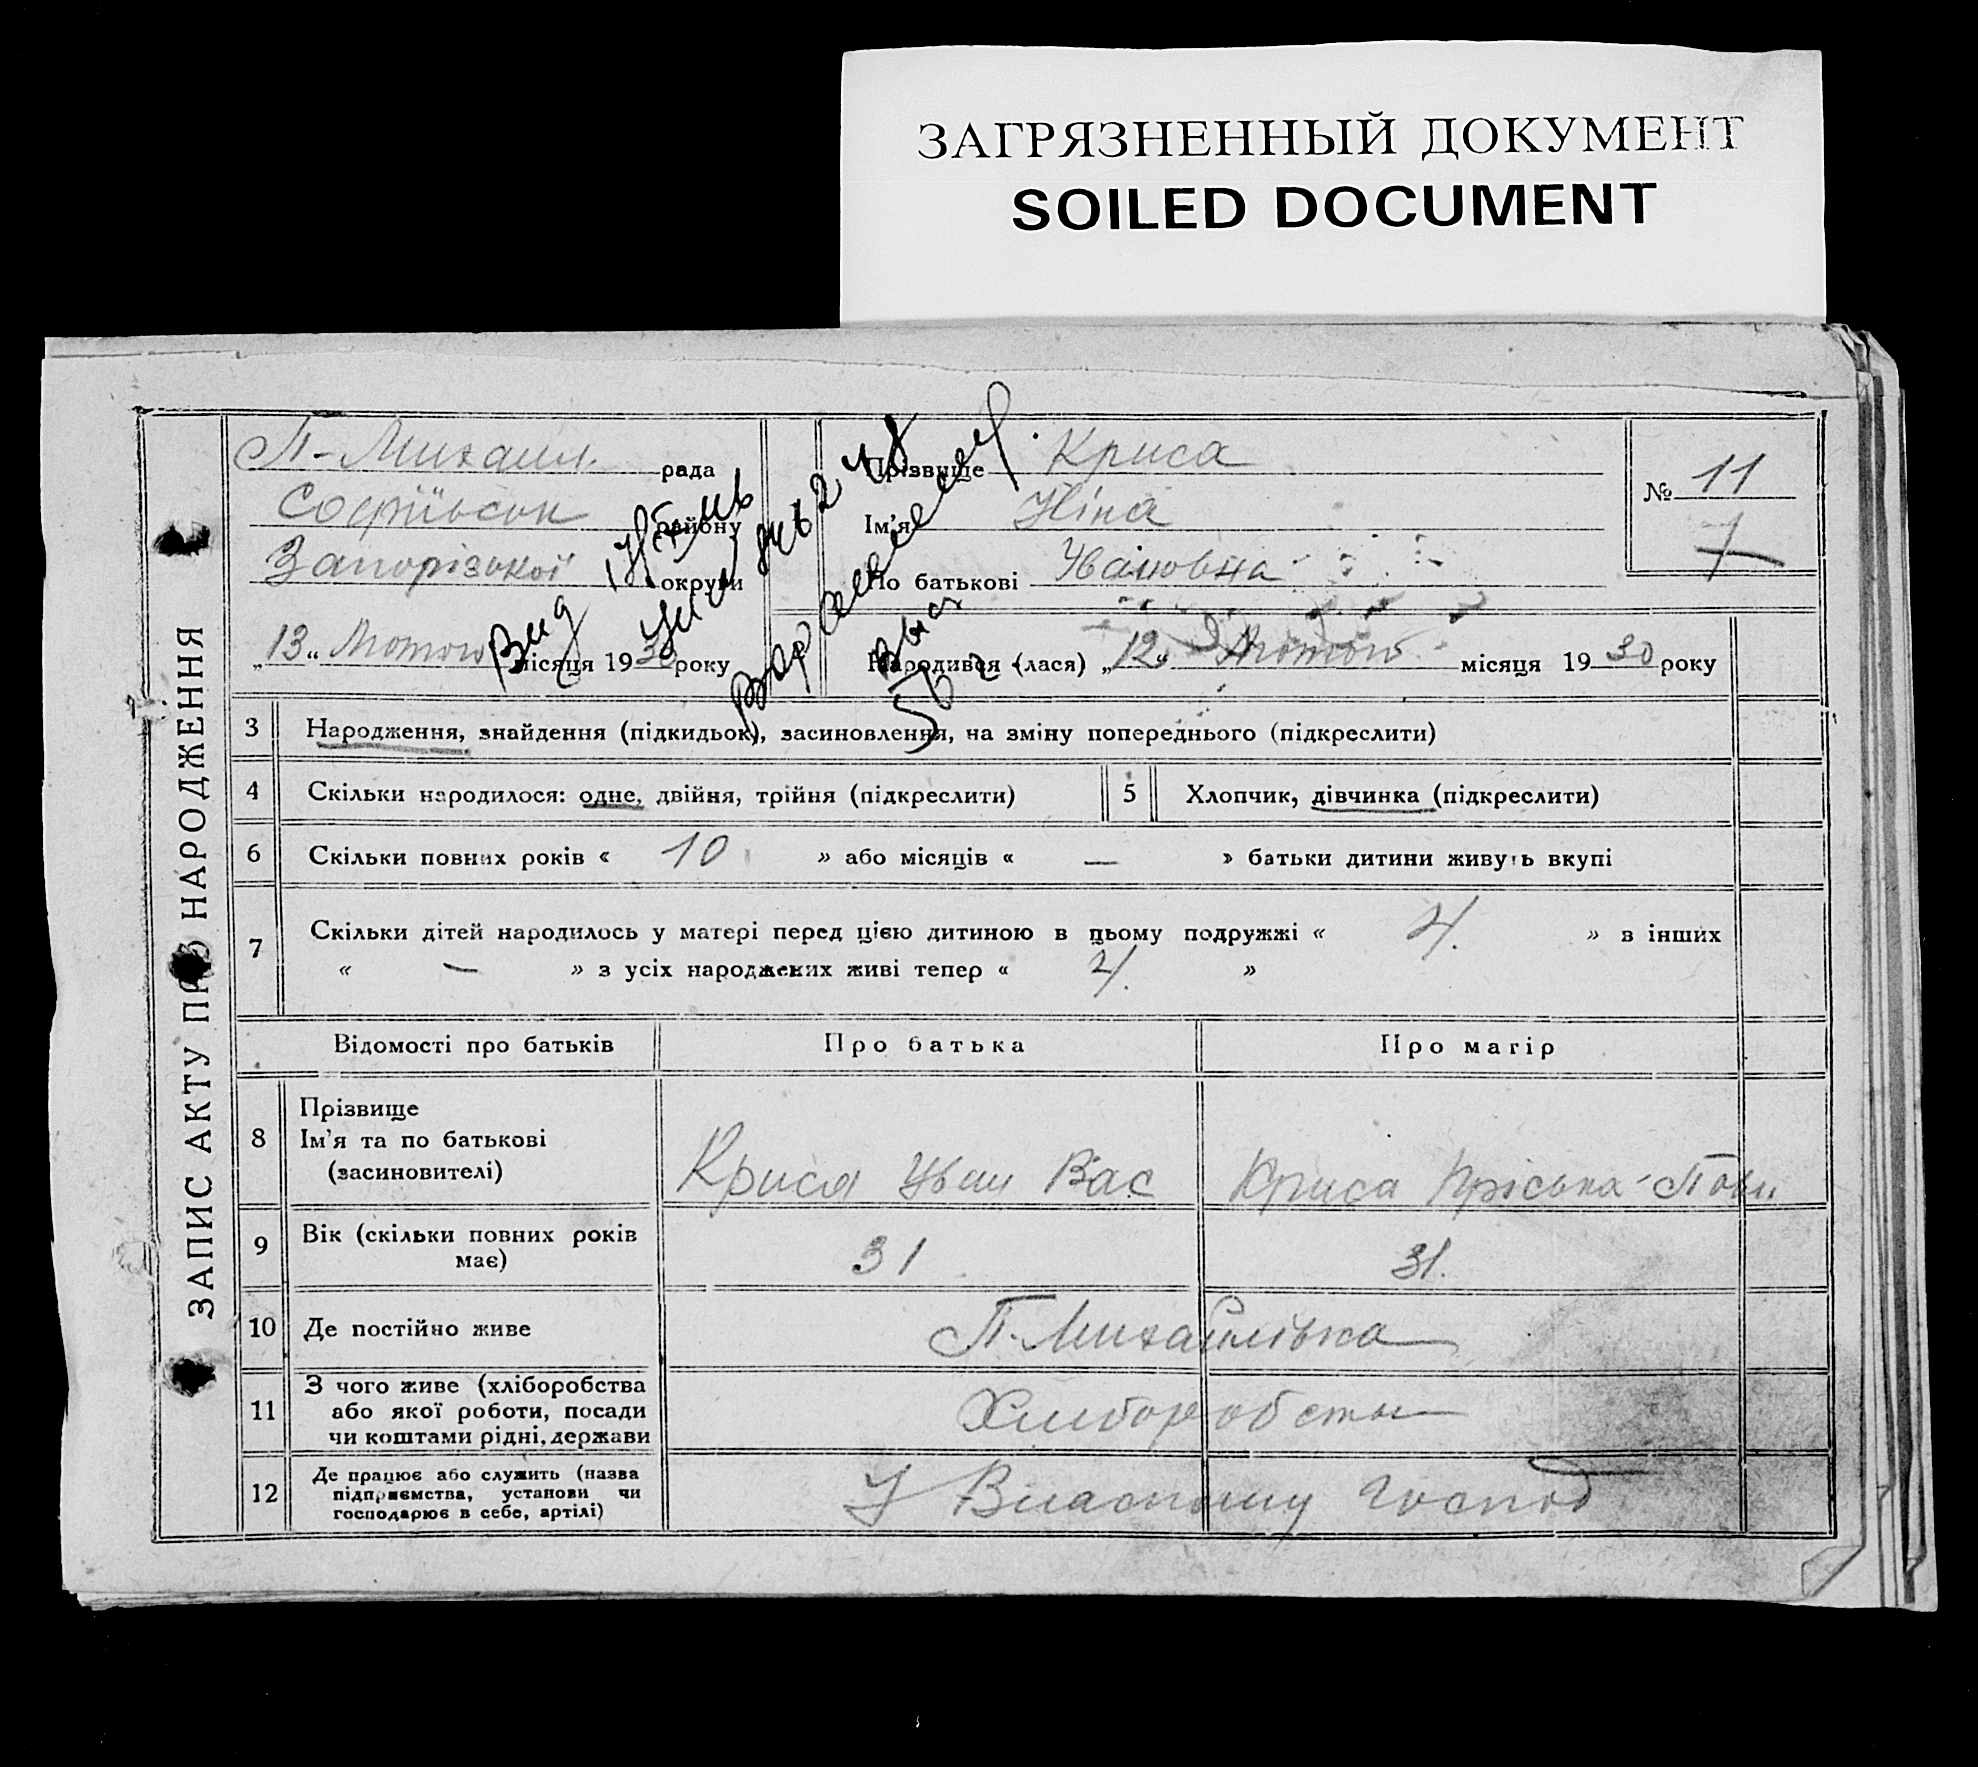 ЗАГРЯЗНЕННЫЙ ДОКУМЕНТ
SOILED DOCUMENT
ЗАПИС АКТУ ПРО НАРОДЖЕННЯ
П-Михайл. рада
Софиівськ району
Запорізької округи
„13“ Лютого місяця 1930 року
Прізвище Криса
Ім'я Ніна
По батькові Ивановна
№ 11
7
Народився (лася) „12“ Лютого місяця 1930 року
3 Народження, знайдення (підкидьок), засиновлення, на зміну попереднього (підкреслити)
4 Скільки народилося: одне, двійня, трійня (підкреслити)
5 Хлопчик, дівчинка (підкреслити)
6 Скільки повних років « 10 » або місяців « — » батьки дитини живуть вкупі
7 Скільки дітей народилось у матері перед цією дитиною в цьому подружжі « 4. » в інших
« — » з усіх народжених живі тепер « 4. »
Відомості про батьків
Про батька
Про матір
8 Прізвище
Ім'я та по батькові
(засиновителі)
Криса Иван Вас
Криса Пріська
9 Вік (скільки повних років
має)
31
31.
10 Де постійно живе
П-Михайлівка
11 З чого живе (хліборобства
або якої роботи, посади
чи коштами рідні, держави
Хлиборобст
12 Де працює або служить (назва
підприємства, установи чи
господарює в себе, артілі)
У Власному Господ